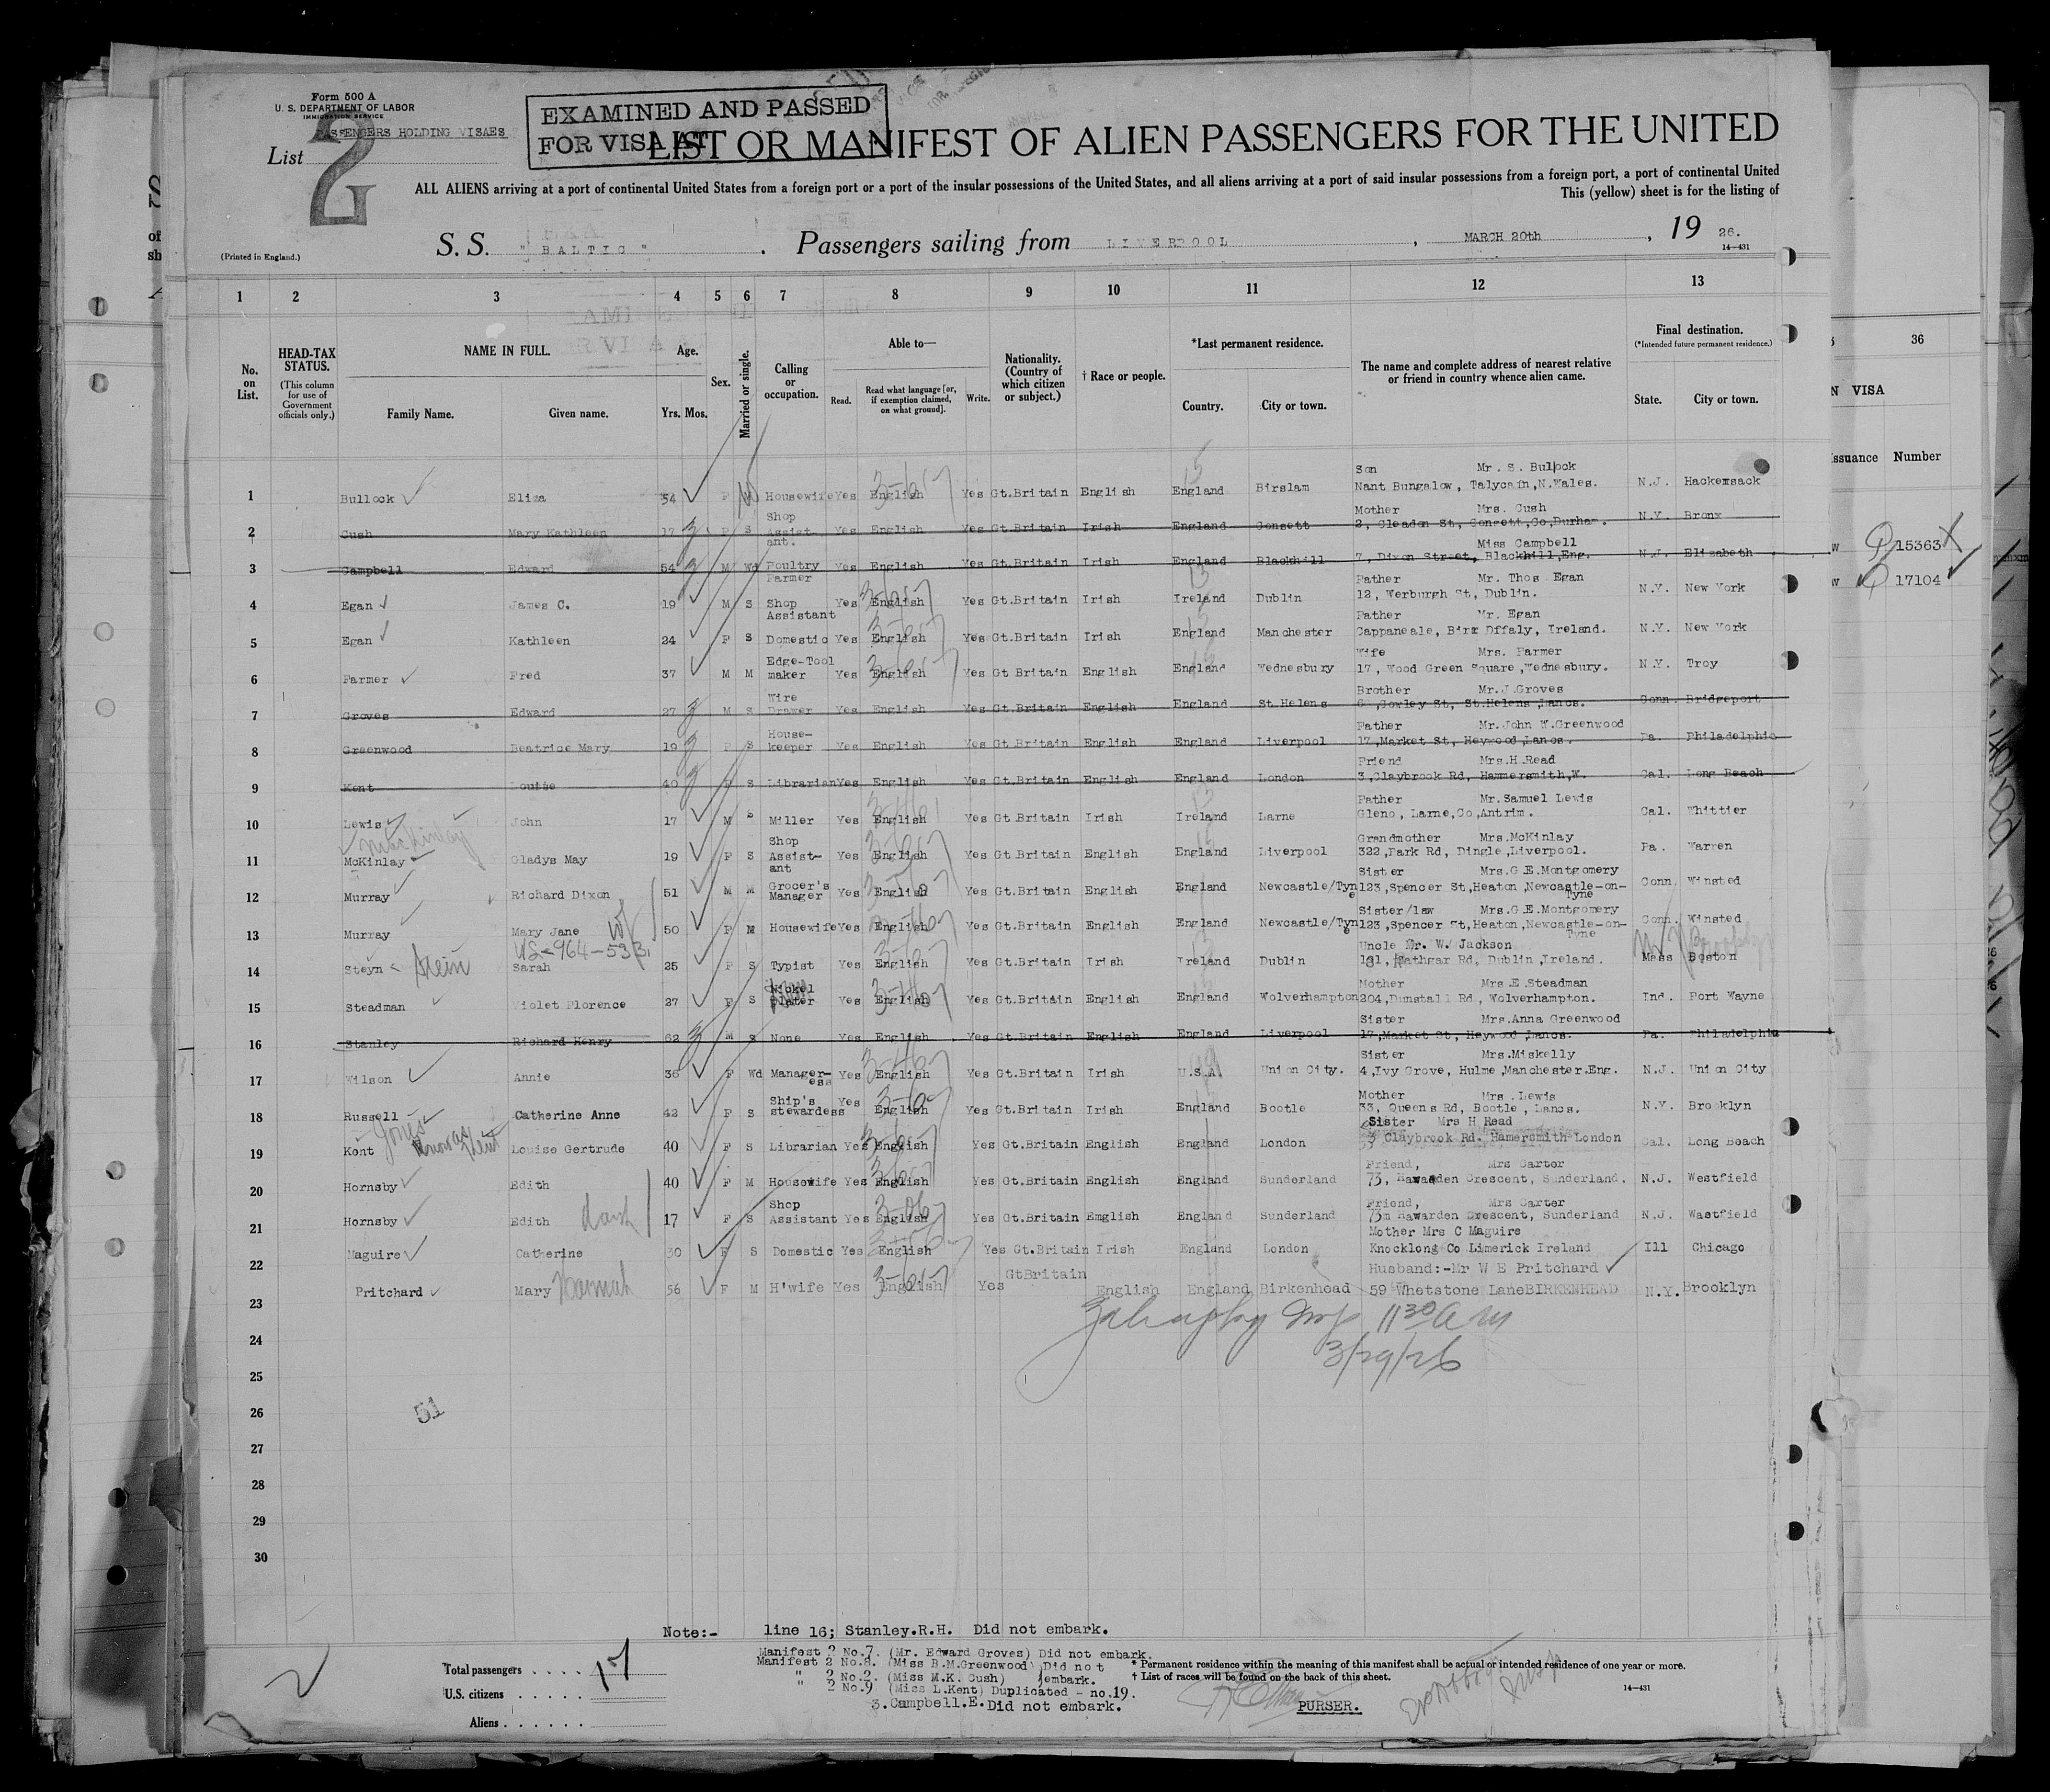 Form 500 A
U. S. DEPARTMENT OF LABOR
IMMIGRATION SERVICE
PASSENGERS HOLDING VISAES
List 2
EXAMINED AND PASSED
FOR VISA AT
LIST OR MANIFEST OF ALIEN PASSENGERS FOR THE UNITED
ALL ALIENS arriving at a port of continental United States from a foreign port or a port of the insular possessions of the United States, and all aliens arriving at a port of said insular possessions from a foreign port, a port of continental United
This (yellow) sheet is for the listing of
(Printed in England.)
S. S. "BALTIC". Passengers sailing from LIVERPOOL, MARCH 20th, 19 26.
14—431
1 2 3 4 5 6 7 8 9 10 11 12 13
36
No. on List.
HEAD-TAX STATUS.
(This column for use of Government officials only.)
NAME IN FULL.
Family Name. Given name.
Age.
Yrs. Mos.
Sex.
Married or single.
Calling or occupation.
Able to—
Read. Read what language [or, if exemption claimed, on what ground]. Write.
Nationality. (Country of which citizen or subject.)
† Race or people.
*Last permanent residence.
Country. City or town.
The name and complete address of nearest relative or friend in country whence alien came.
Final destination.
(*Intended future permanent residence.)
State. City or town.
N VISA
ssuance Number
15363
17104
1 Bullock Eliza 54 F Wd Housewife Yes English Yes Gt.Britain English England Birslam Son Mr. S. Bullock Nant Bungalow, Talycain,N.Wales. N.J. Hackensack
2 Cush Mary Kathleen 17 F S Shop Assist- ant. Yes English Yes Gt.Britain Irish England Consett Mother Mrs. Cush 2, Cleadon St, Consett,Co,Durham. N.Y. Bronx
3 Campbell Edward 54 M Wd Poultry Farmer Yes English Yes Gt.Britain Irish England Blackhill Miss Campbell 7, Dixon Street, Blackhill,Eng. N.J. Elizabeth
4 Egan James C. 19 M S Shop Assistant Yes English Yes Gt.Britain Irish Ireland Dublin Father Mr. Thos Egan 12, Werburgh St, Dublin. N.Y. New York
5 Egan Kathleen 24 F S Domestic Yes English Yes Gt.Britain Irish England Manchester Father Mr. Egan Cappaneale, Birr Offaly, Ireland. N.Y. New York
6 Farmer Fred 37 M M Edge-Tool maker Yes English Yes Gt Britain English England Wednesbury Wife Mrs. Farmer 17, Wood Green Square,Wednesbury. N.Y. Troy
7 Groves Edward 27 M S Wire Drawer Yes English Yes Gt.Britain English England St.Helens Brother Mr.J.Groves Cowley St, St.Helens,Lancs. Conn. Bridgeport
8 Greenwood Beatrice Mary 19 F S House- keeper Yes English Yes Gt.Britain English England Liverpool Father Mr.John W.Greenwood 17,Market St, Heywood,Lancs. Pa. Philadelphia
9 Kent Louise 40 F S Librarian Yes English Yes Gt.Britain English England London Friend Mrs.H.Read 3,Claybrook Rd, Hammersmith,W. Cal. Long Beach
10 Lewis John 17 M S Miller Yes English Yes Gt.Britain Irish Ireland Larne Father Mr.Samuel Lewis Gleno, Larne,Co,Antrim. Cal. Whittier
MacKinlay
11 McKinlay Gladys May 19 F S Shop Assist- ant Yes English Yes Gt.Britain English England Liverpool Grandmother Mrs.McKinlay 322,Park Rd, Dingle,Liverpool. Pa. Warren
12 Murray Richard Dixon 51 M M Grocer's Manager Yes English Yes Gt.Britain English England Newcastle/Tyne Sister Mrs.G.E.Montgomery 123,Spencer St,Heaton,Newcastle-on-Tyne Conn. Winsted
13 Murray Mary Jane wf 50 F M Housewife Yes English Yes Gt.Britain English England Newcastle/Tyne Sister/law Mrs.G.E.Montgomery 123,Spencer St,Heaton,Newcastle-on-Tyne Conn. Winsted
14 Steyn Stein Sarah 25 F S Typist Yes English Yes Gt.Britain Irish Ireland Dublin Uncle Mr. W. Jackson Rathgar Rd, Dublin,Ireland. Mass Boston N Y Brooklyn
15 Steadman Violet Florence 27 F S Nickel Plater Yes English Yes Gt.Britain English England Wolverhampton Mother Mrs.E.Steadman 204,Dunstall Rd, Wolverhampton. Ind. Fort Wayne
16 Stanley Richard Henry 62 M S None Yes English Yes Gt.Britain English England Liverpool Sister Mrs.Anna Greenwood 17,Market St, Heywood,Lancs. Pa. Philadelphia
17 Wilson Annie 36 F Wd Manager- ess Yes English Yes Gt.Britain Irish U.S.A. Union City. Sister Mrs.Miskelly 4,Ivy Grove, Hulme,Manchester.Eng. N.J. Union City
18 Russell Jones Catherine Anne 42 F S Ship's stewardess Yes English Yes Gt.Britain Irish England Bootle Mother Mrs. Lewis 33, Queens Rd, Bootle, Lancs. N.Y. Brooklyn
19 Kent Louise Gertrude 40 F S Librarian Yes English Yes Gt.Britain English England London Sister Mrs H Read 3 Claybrook Rd. Hamersmith London Cal. Long Beach
20 Hornsby Edith 40 F M Housewife Yes English Yes Gt.Britain English England Sunderland Friend, Mrs Carter 73, Hawarden Crescent, Sunderland. N.J. Westfield
21 Hornsby Edith daugh 17 F S Shop Assistant Yes English Yes Gt.Britain Emglish England Sunderland Friend, Mrs Carter 73m Hawarden Crescent, Sunderland N.J. Wastfield
22 Maguire Catherine 30 F S Domestic Yes English Yes Gt.Britain Irish England London Mother Mrs C Maguire Knocklong Co Limerick Ireland Ill Chicago
23 Pritchard Mary Hannah 56 F M H'wife Yes English Yes GtBritain English England Birkenhead Husband:-Mr W E Pritchard 59 Whetstone LaneBIRKENHEAD N.Y. Brooklyn
11 30 a m
24 3/29/26
25
26 51
27
28
29
30
Note:- line 16; Stanley.R.H. Did not embark.
Manifest 2 No.7. (Mr. Edward Groves) Did not embark.
Manifest 2 No.8. (Miss B.M.Greenwood) Did not
" 2 No.2. (Miss M.K. Cush) )embark.
" 2 No.9 (Miss L.Kent) Duplicated - no.19.
3. Campbell.E. Did not embark.
Total passengers 17
U.S. citizens
Aliens
* Permanent residence within the meaning of this manifest shall be actual or intended residence of one year or more.
† List of races will be found on the back of this sheet.
14—431
PURSER.